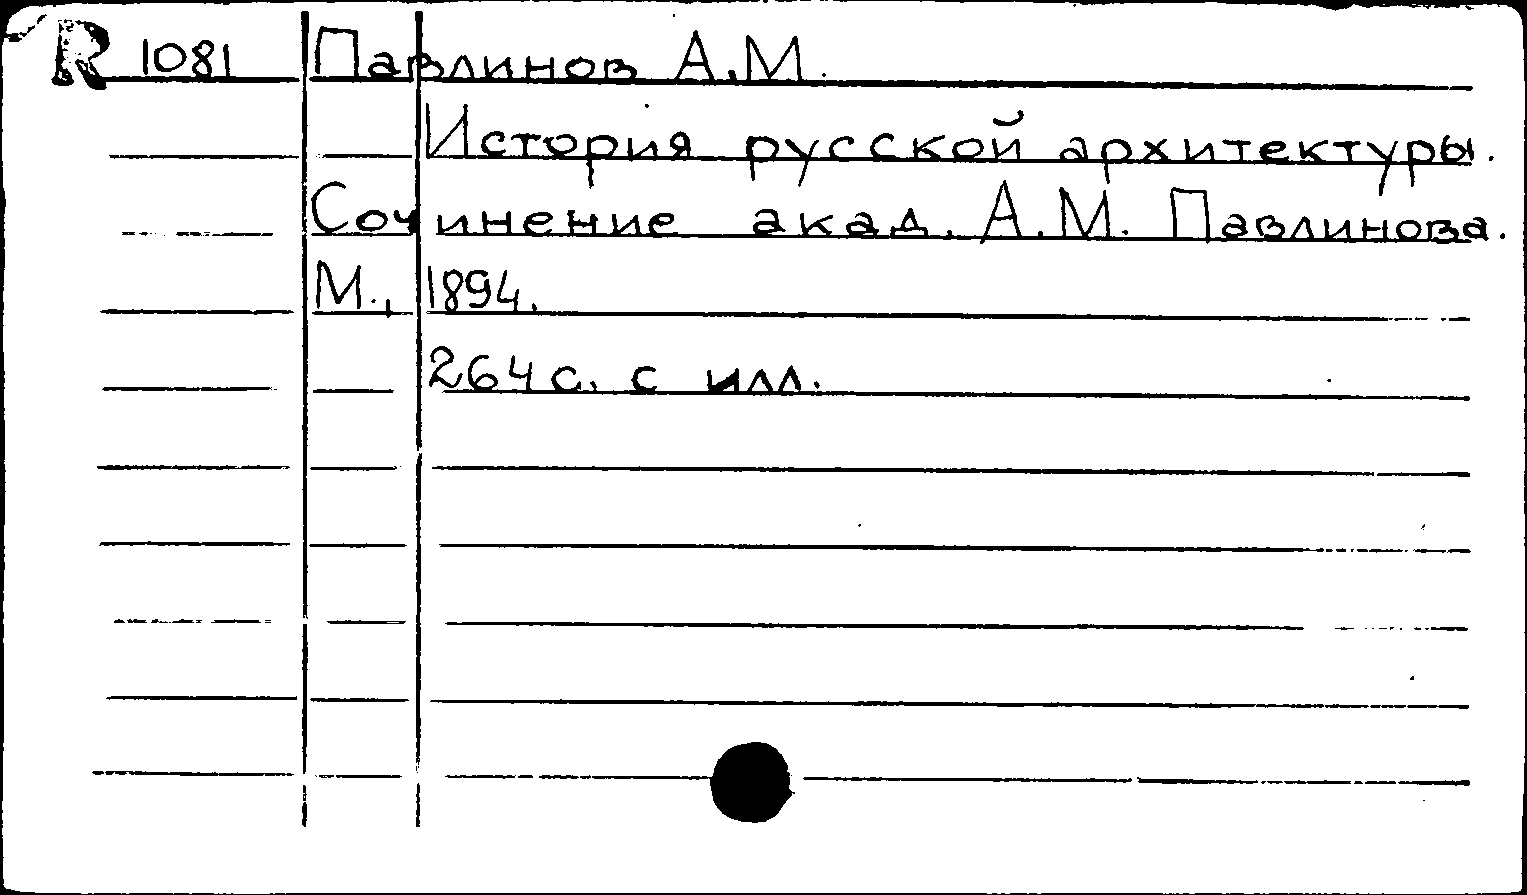 R 1081 Павлинов А.М.
История русской архитектуры.
Сочинение акад. А.М. Павлинова.
М., 1894.
264 с. с илл.